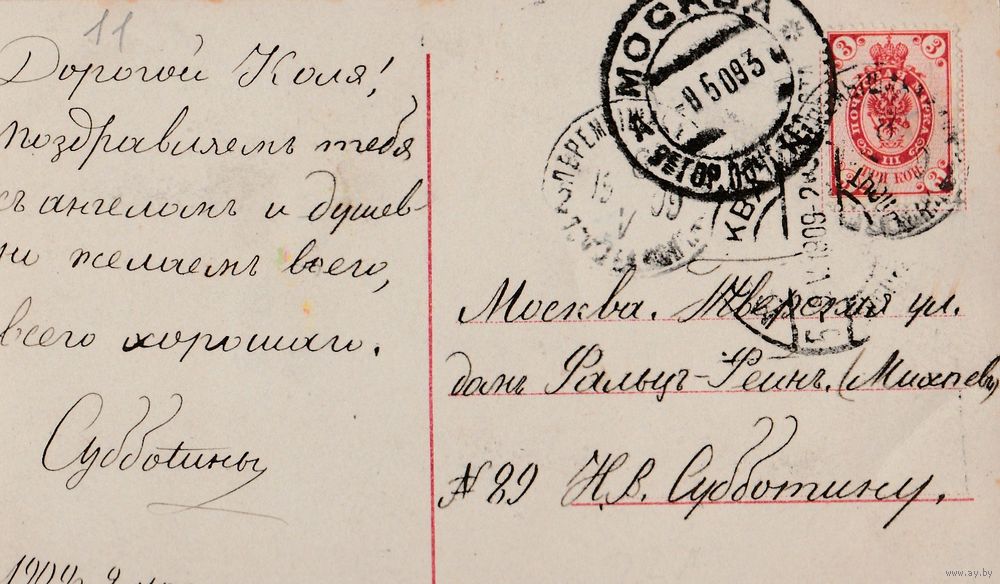 11
Дорогой Коля!
поздравляемъ тебя
съ ангеломъ и душев-
но желаемъ всего,
всего хорошаго.
Субботины
МОСКВА
8 5 09 3
3 3
ПОЧТОВАЯ МАРКА
III
ТРИ КОП.
Москва. Тверская ул.
домъ Фальцъ-Фейнъ. (Михпевъ)
№ 29 Н.В. Субботину.
www.ay.by